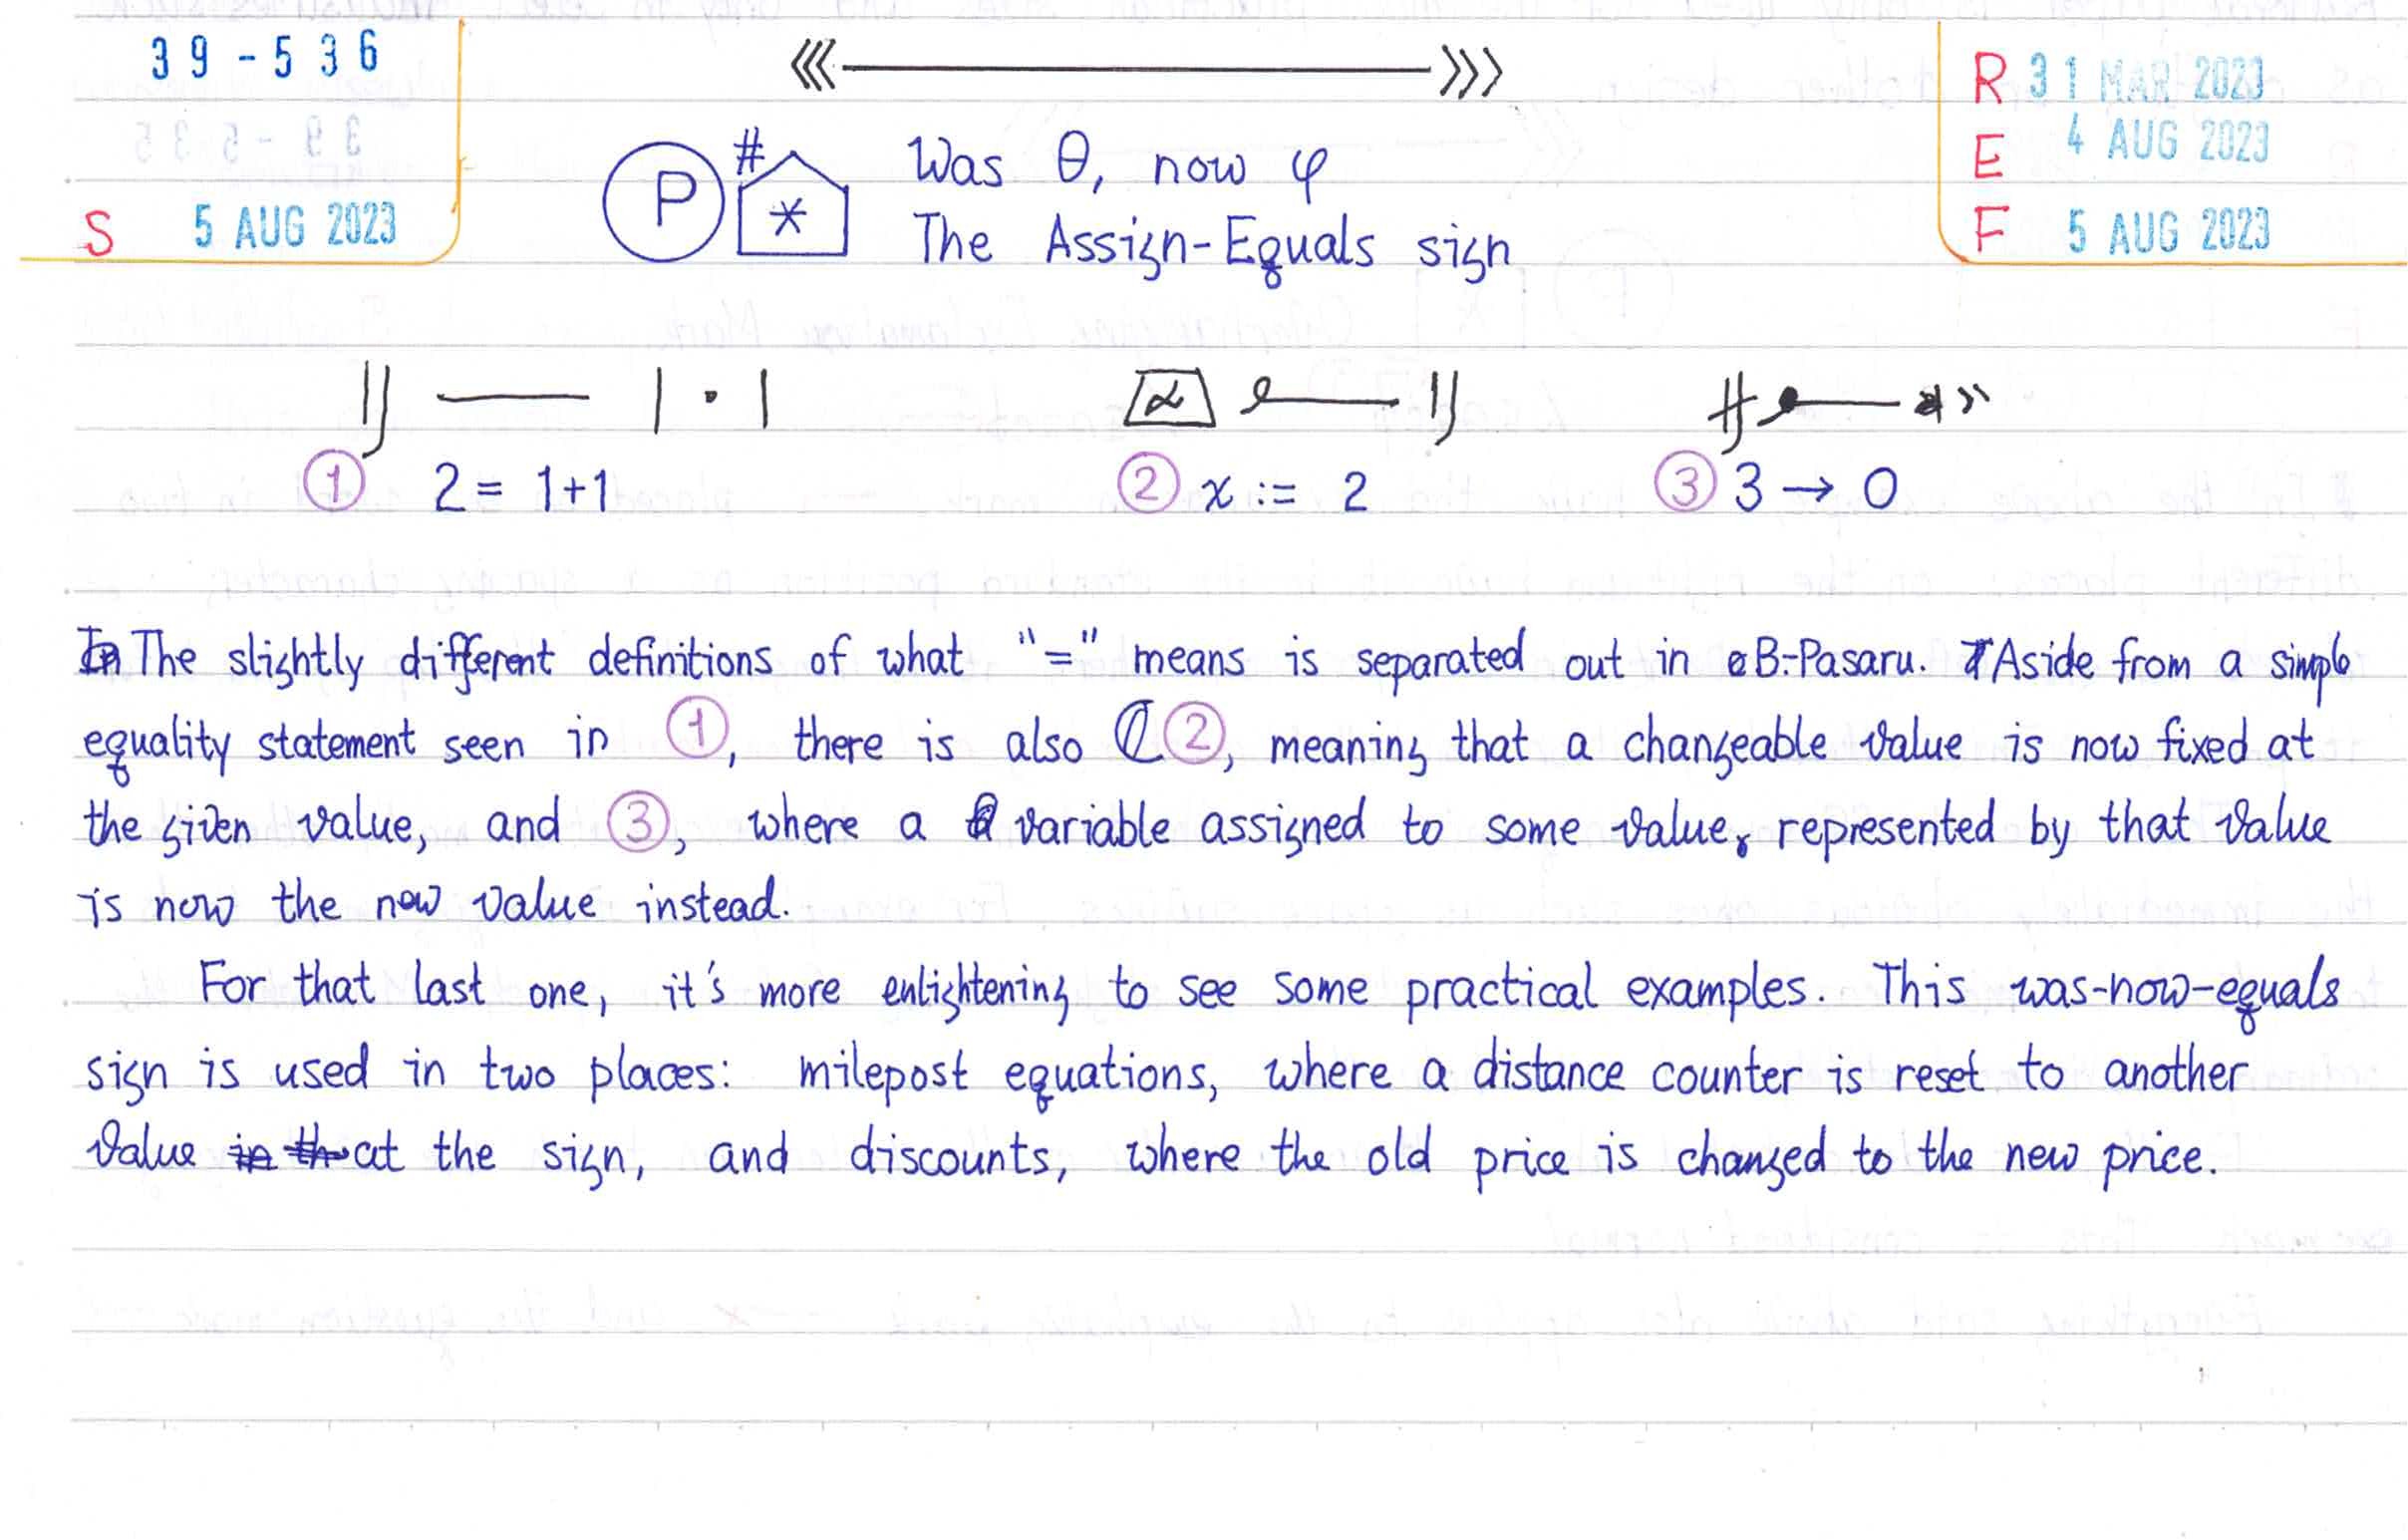 39-536
S 5 AUG 2023
R 31 MAR 2023
E 4 AUG 2023
F 5 AUG 2023
P # * Was θ, now φ
The Assign-Equals sign
① 2 = 1+1 ② x := 2 ③ 3 → 0
The slightly different definitions of what "=" means is separated out in B-Pasaru. Aside from a simple
equality statement seen in ①, there is also ②, meaning that a changeable value is now fixed at
the given value, and ③, where a variable assigned to some value, represented by that value
is now the new value instead.
For that last one, it's more enlightening to see some practical examples. This was-now-equals
sign is used in two places: milepost equations, where a distance counter is reset to another
value at the sign, and discounts, where the old price is changed to the new price.